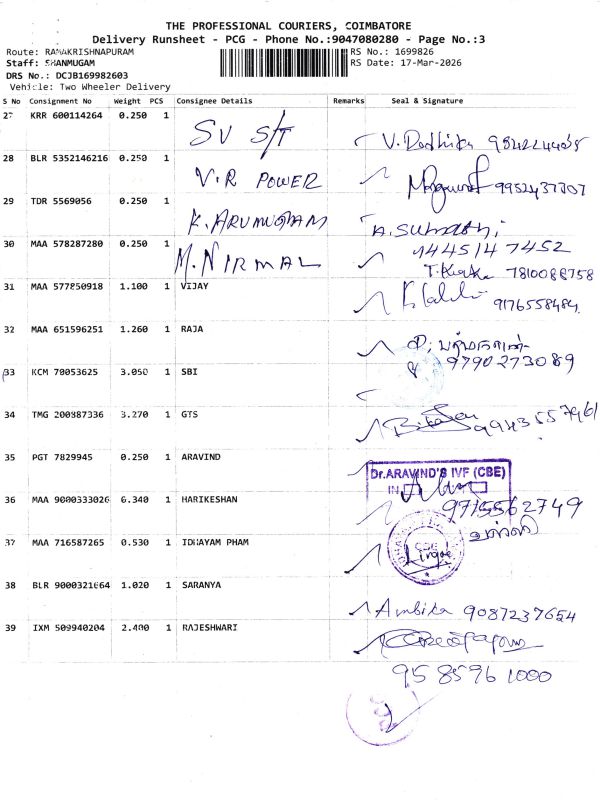 THE PROFESSIONAL COURIERS, COIMBATORE
Delivery Runsheet - PCG - Phone No.:9047080280 - Page No.:3
Route: RAMAKRISHNAPURAM RS No.: 1699826
Staff: SHANMUGAM RS Date: 17-Mar-2026
DRS No.: DCJB169982603
Vehicle: Two Wheeler Delivery
S No Consignment No Weight PCS Consignee Details Remarks Seal & Signature
27 KRR 600114264 0.250 1 SV S/T V. Radhika
28 BLR 5352146216 0.250 1 V.R POWER 9952437307
29 TDR 5569056 0.250 1 K. ARUMUGHAM A. Sumathi
9445147452
30 MAA 578287280 0.250 1 M. NIRMAL 7810088758
31 MAA 577850918 1.100 1 VIJAY 9176558484
32 MAA 651596251 1.260 1 RAJA
9790273089
33 KCM 70053625 3.050 1 SBI
34 TMG 200887336 3.270 1 GTS 9943557961
35 PGT 7829945 0.250 1 ARAVIND
Dr.ARAVIND'S IVF (CBE)
36 MAA 9000333026 6.340 1 HARIKESHAN 9715562749
37 MAA 716587265 0.530 1 IDHAYAM PHAM
CBE
38 BLR 9000321664 1.020 1 SARANYA Ambika 9087237654
39 IXM 509940204 2.400 1 RAJESHWARI
95 8596 1000